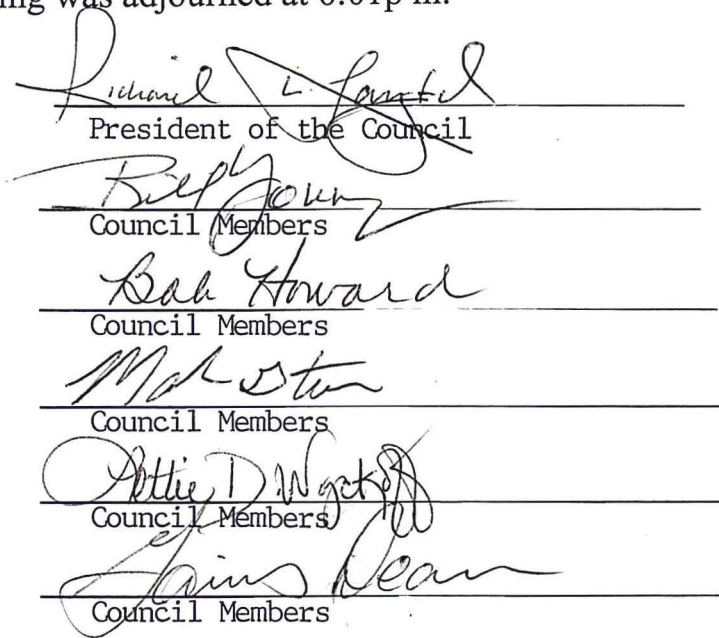 ing was adjourned at 6:01p m.
Richard L.
President of the Council
Bill Young
Council Members
Bob Howard
Council Members
Council Members
D Wyckoff
Council Members
Dean
Council Members